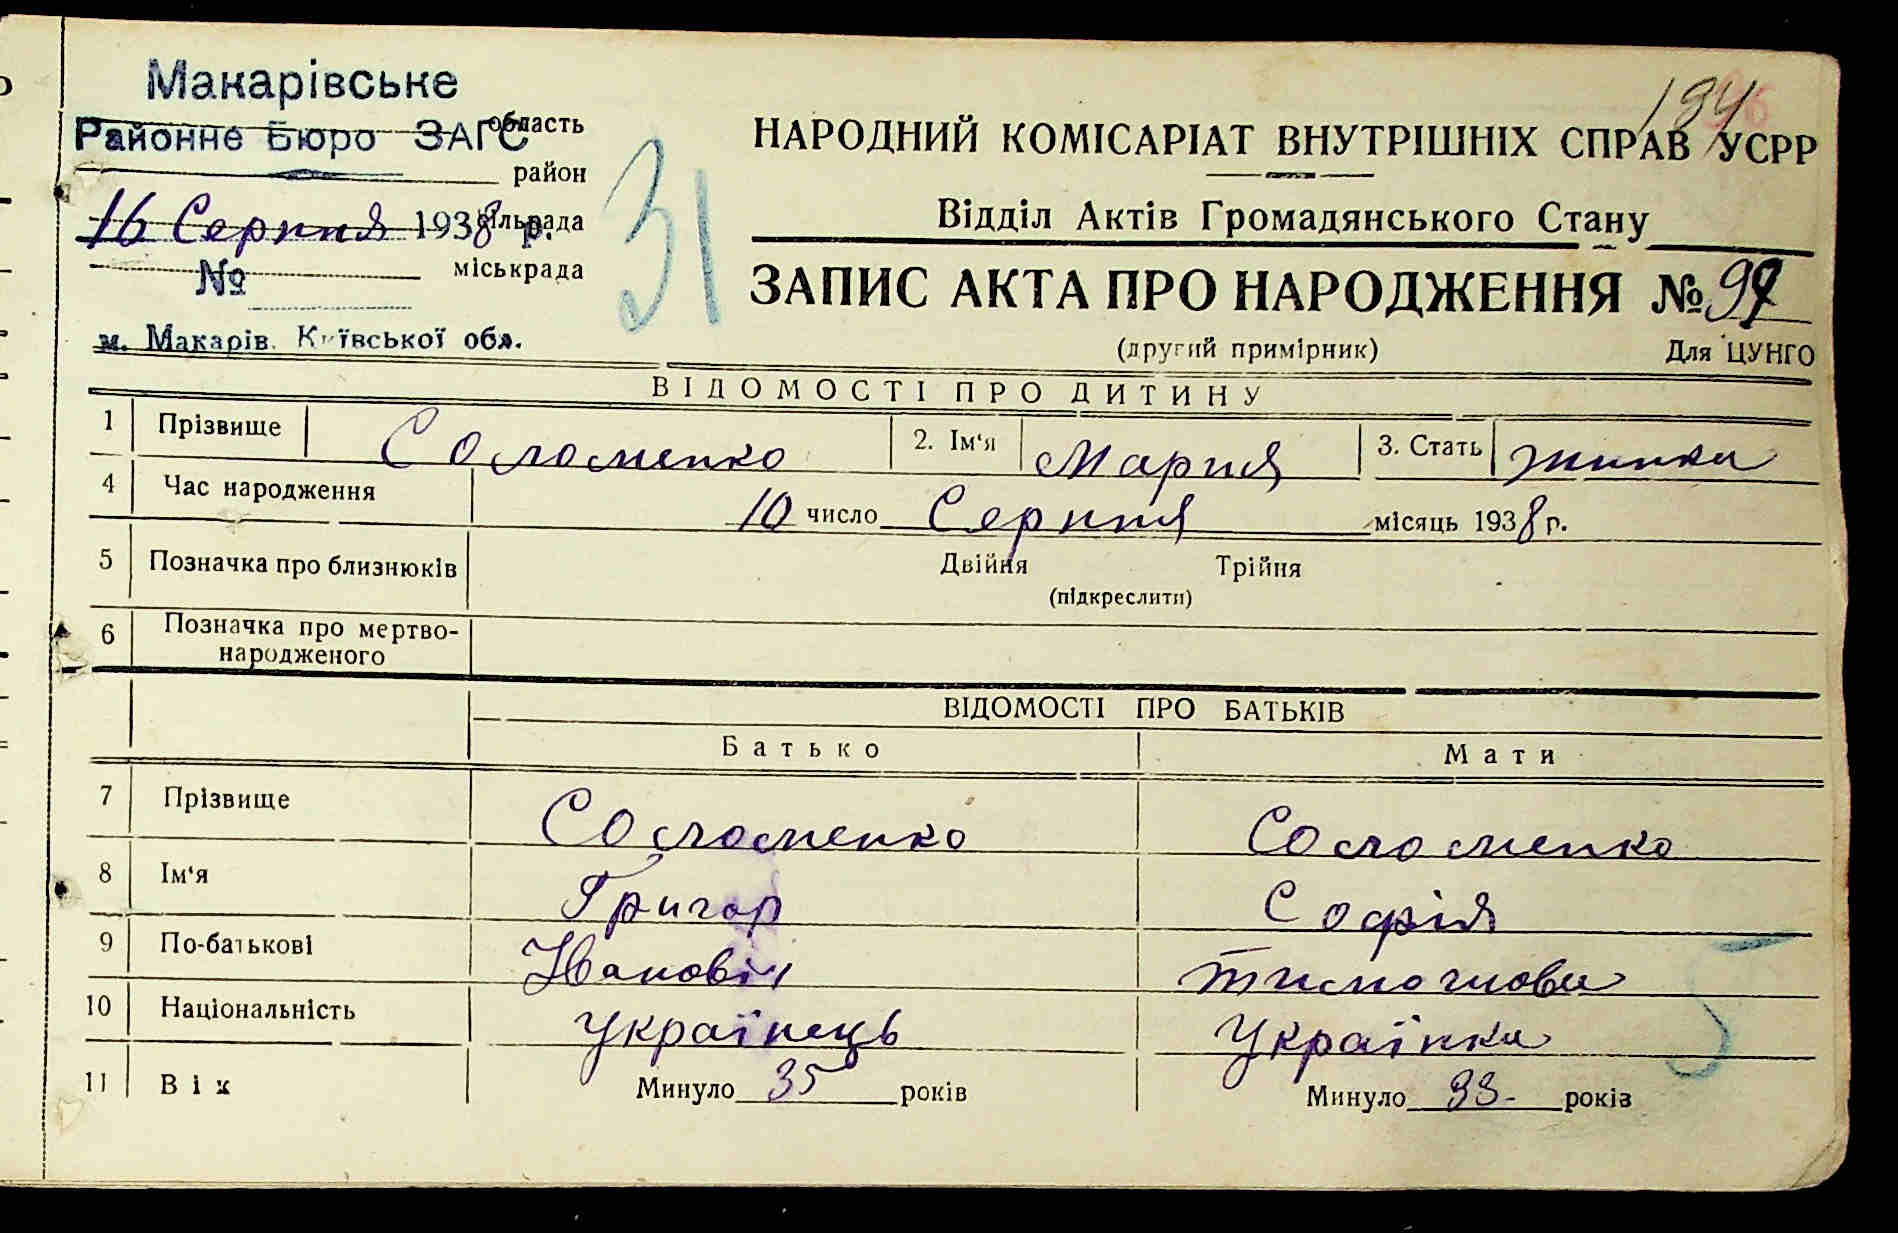 Макарівське
Районне Бюро ЗАГС
область
район
16 Серпня 1938 р.
сільрада
№
міськрада
м. Макарів, Київської обл.
31
НАРОДНИЙ КОМІСАРІАТ ВНУТРІШНІХ СПРАВ УСРР
Відділ Актів Громадянського Стану
ЗАПИС АКТА ПРО НАРОДЖЕННЯ №
(другий примірник) Для ЦУНГО
ВІДОМОСТІ ПРО ДИТИНУ
1 Прізвище Соломенко 2. Ім'я Мария 3. Стать жинка
4 Час народження 10 число Серпня місяць 1938 р.
5 Позначка про близнюків Двійня Трійня
(підкреслити)
6 Позначка про мертво-
народженого
ВІДОМОСТІ ПРО БАТЬКІВ
Батько Мати
7 Прізвище Соломенко Соломенко
8 Ім'я Григор Софія
9 По-батькові Іванович
10 Національність Українець Українка
5
11 Вік Минуло 35 років Минуло 33 років